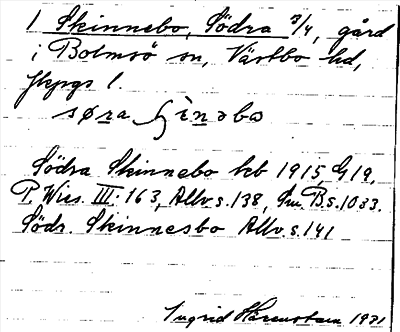 1 Skinnebo, Södra 3/4, gård
i Bolmsö sn, Västbo hd,
Jkpgs l.
søra
Södra Skinnebo kb 1915 G19,
P. Wies. III: 163, Allv s. 138, Sm. B s. 1033.
Södr. Skinnesbo Allv s. 141
Ingrid 1931